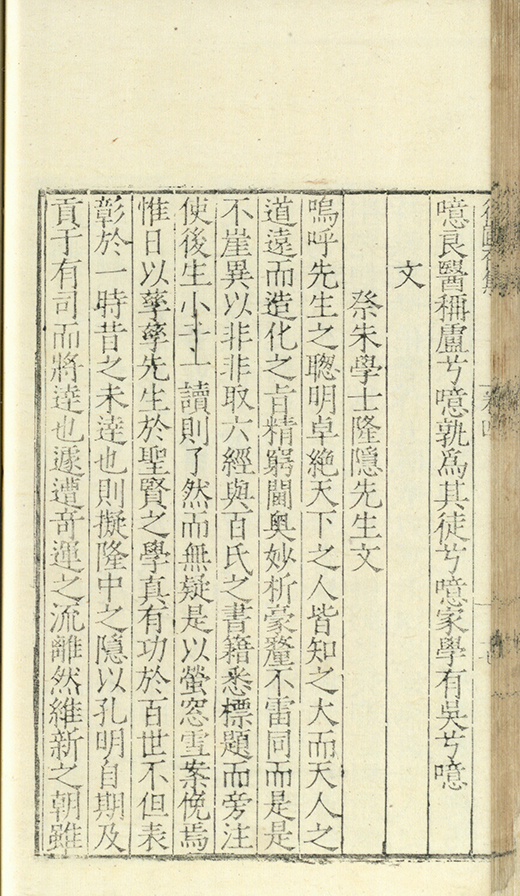 噫良醫稱盧兮噫孰爲其徒兮噫家學有吳兮噫
文
祭朱學士隆隱先生文
嗚呼先生之聰明卓絶天下之人皆知之大而天人之
道遠而造化之旨精窮閫奥妙析豪釐不雷同而是是
不崖異以非非取六經與百氏之書籍悉標題而旁注
使後生小子一讀則了然而無疑是以螢窓雪案俛焉
惟日以孳孳先生於聖賢之學真有功於百世不但表
彰於一時昔之未逹也則擬隆中之隱以孔明自期及
貢于有司而將逹也遽遭竒運之流離然維新之朝雖